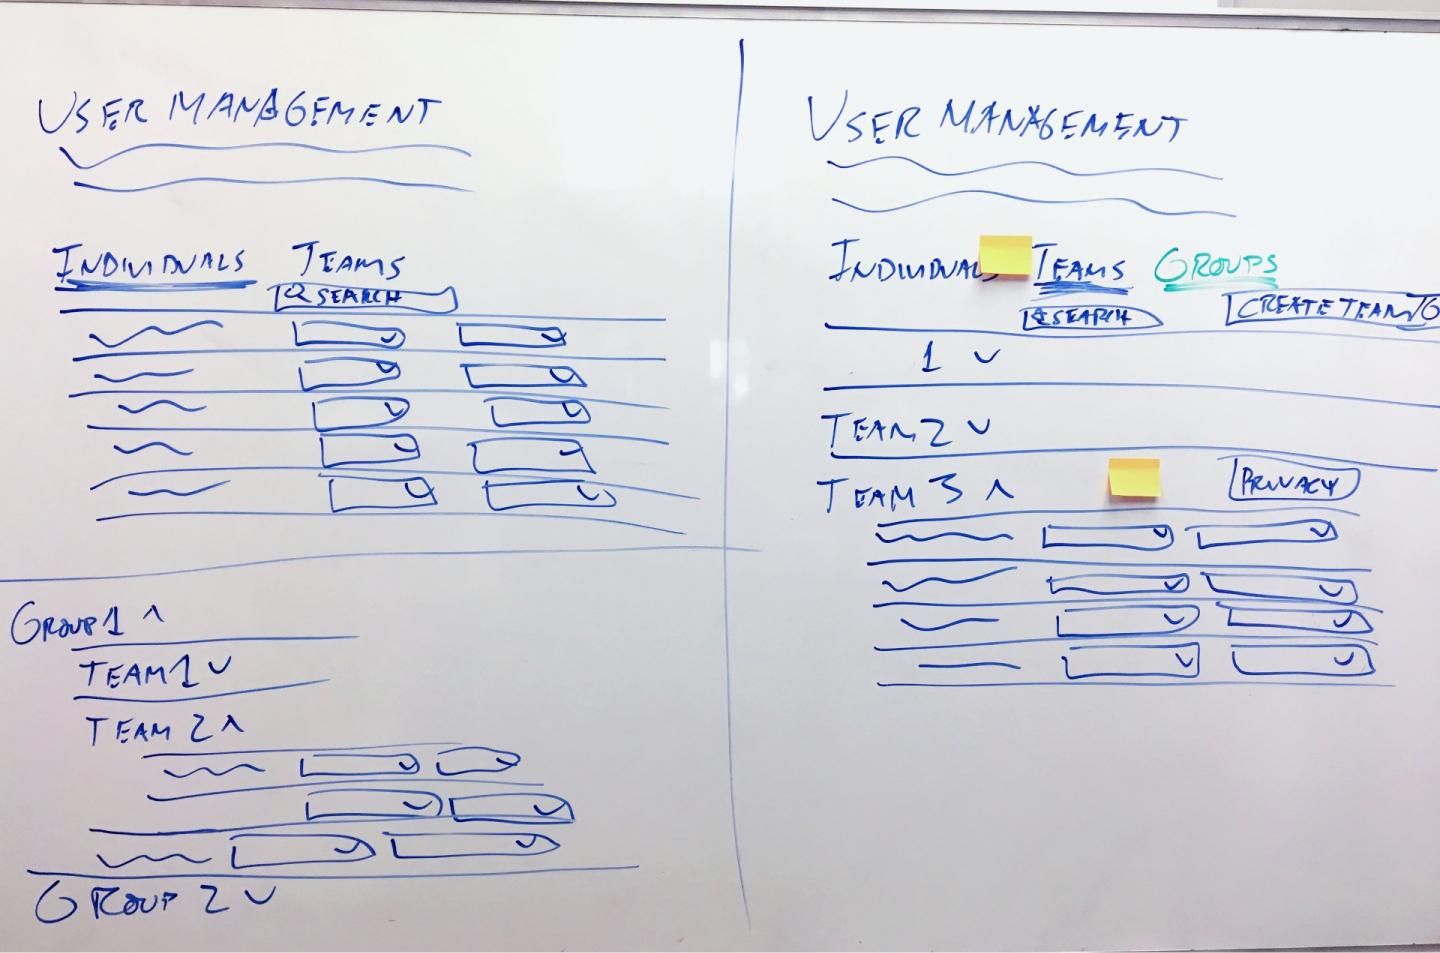 USER MANAGEMENT
INDIVIDUALS TEAMS
SEARCH
GROUP 1 ^
TEAM 1 v
TEAM 2 ^
GROUP 2 v
USER MANAGEMENT
INDIVIDUALS TEAMS GROUPS
SEARCH CREATE TEAM
1 v
TEAM 2 v
TEAM 3 ^ PRIVACY